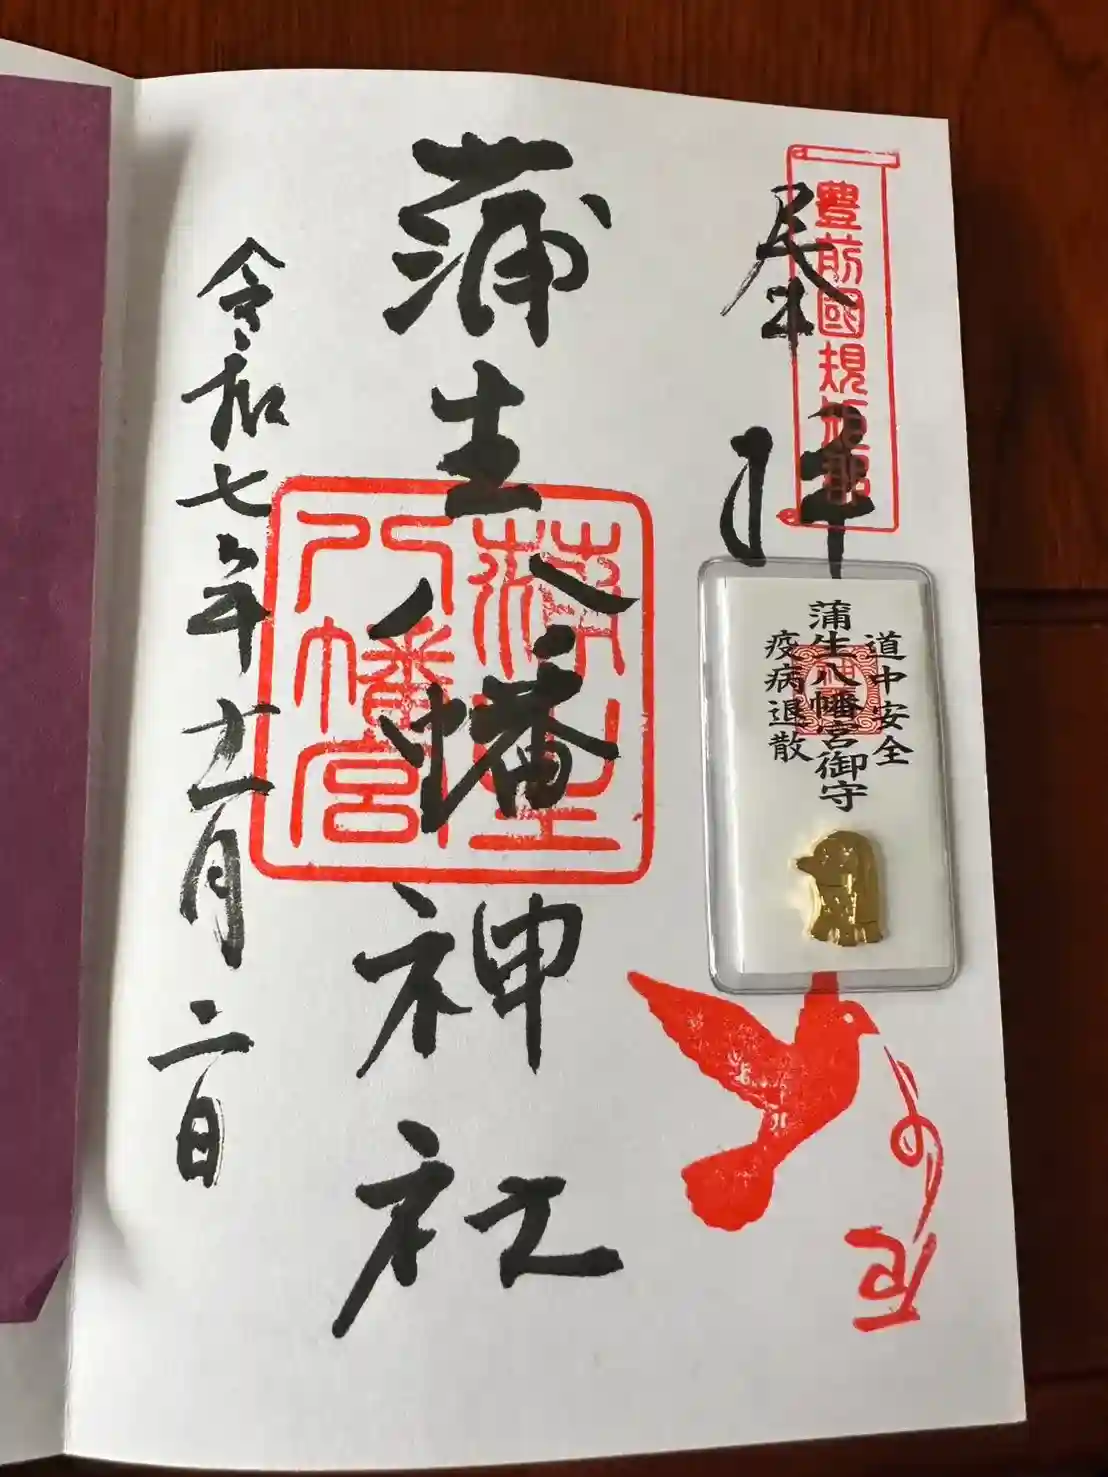 豊前國規矩郡
奉拝
道中安全
蒲生八幡宮御守
疫病退散
蒲生八幡神社
蒲生
八幡宮
令和七年十一月二日